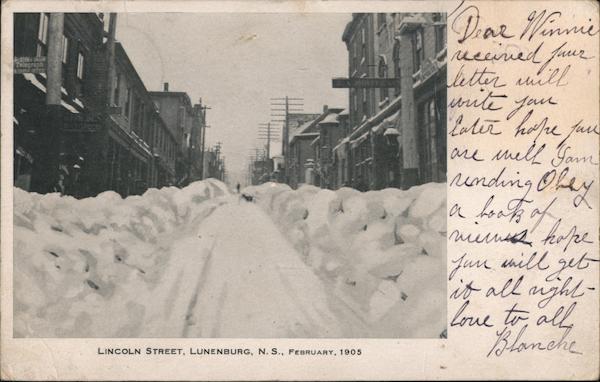 Telegraph
Dear Winnie
received your
letter will
write you
later hope you
are well I am
sending Obey
a book of
views hope
you will get
it all right-
love to all
Blanche
LINCOLN STREET, LUNENBURG, N. S., FEBRUARY, 1905